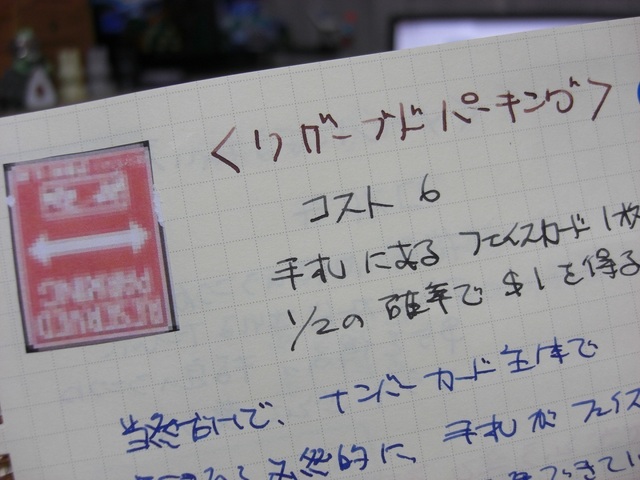 〈リザーブドパーキング〉
コスト 6
手札にある フェイスカード 1枚
1/2の 確率で $1を得る
ナンバーカード主体で
必然的に 手札が フェイス
RESERVED
PARKING